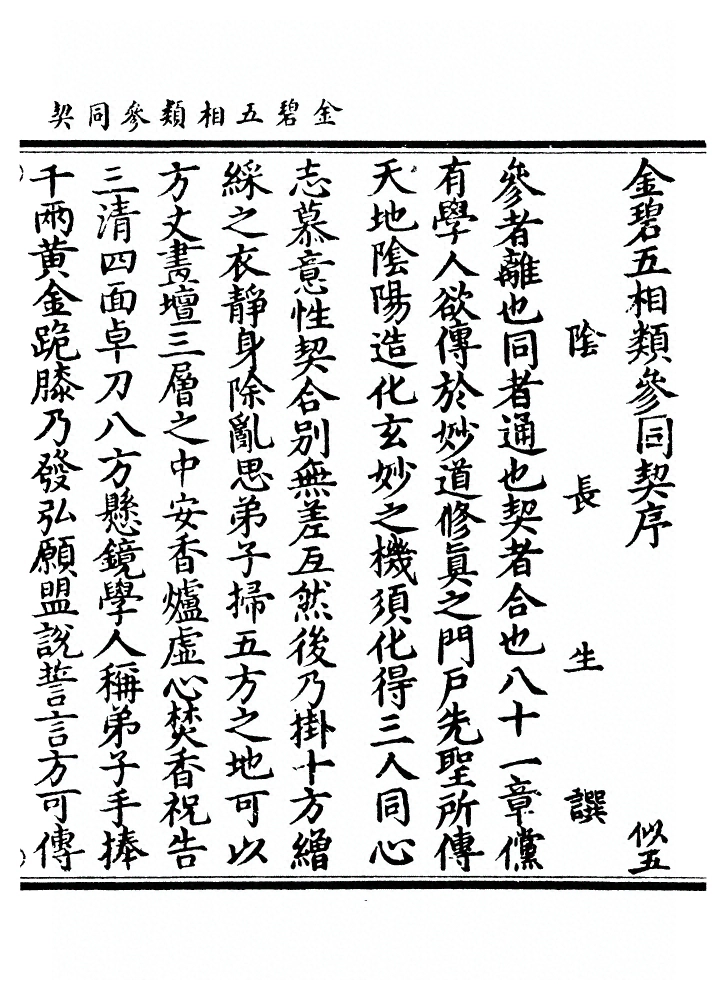 金碧五相類參同契
金碧五相類參同契序
似五
陰長生譔
參者離也同者通也契者合也八十一章儻
有學人欲傳於妙道修眞之門戶先聖所傳
天地陰陽造化玄妙之機須化得三人同心
志慕意性契合别無差互然後乃掛十方繒
綵之衣靜身除亂思弟子掃五方之地可以
方丈畫壇三層之中安香爐虛心焚香祝告
三清四面卓刀八方懸鏡學人稱弟子手捧
千兩黃金跪膝乃發弘願盟說誓言方可傳